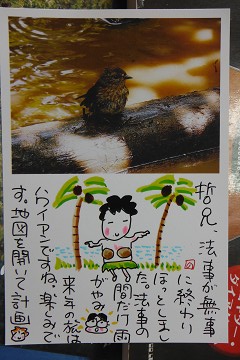 哲兄、法事が無事
に終わり
ほっとしまし
た。法事の
間だけ雨
がやみ
来年の旅は
ハワイアンですね。楽しみで
す。地図を開いて計画